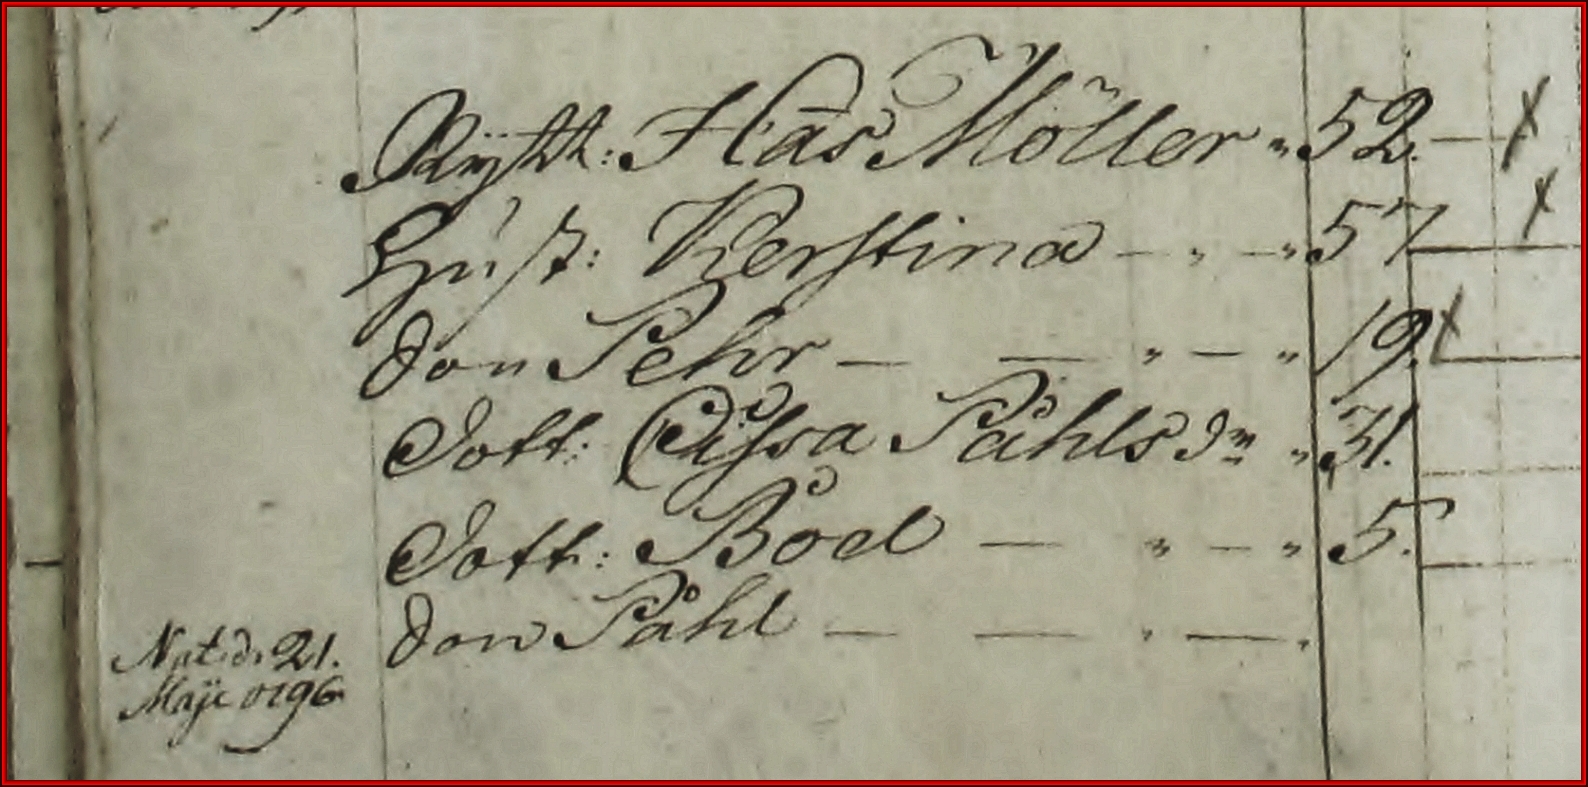 Rytt: Has Möller " 52. — x
Hust: Kerstina — " — " 57 x
Son Pehr — — " — " 19. x
Dott: Cissa Påhls dr " 31.
Dott: Boel — " — " 5.
Son Påhl — — " —
Nat. d. 21.
Maji 1796